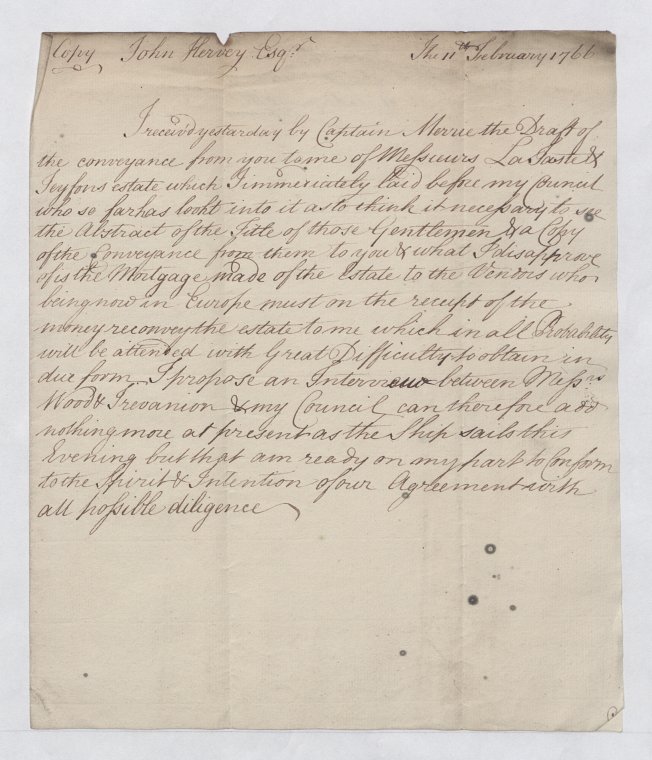 Copy John Hervey Esqr. The 11th February 1766
I receiv'd yestarday by Captain Merrie the Draft of
the conveyance from you to me of Messieurs La Taste &
Jeysons estate which I immeriately laid before my Council
who so far has lookt into it as to think it necessary to see
the Abstract of the Title of those Gentlemen & a Copy
of the Conveyance from them to you & what I disapprove
of is the Mortgage made of the Estate to the Vendors who
being now in Europe must on the receipt of the
money reconvey the estate to me which in all Probability
will be attended with Great Difficulty to obtain in
due form I propose an Interview between Messrs
Wood & Trevanion & my Council, can therefore add
nothing more at present as the Ship sails this
Evening but that am ready on my part to Conform
to the Spirit & Intention of our Agreement with
all possible diligence